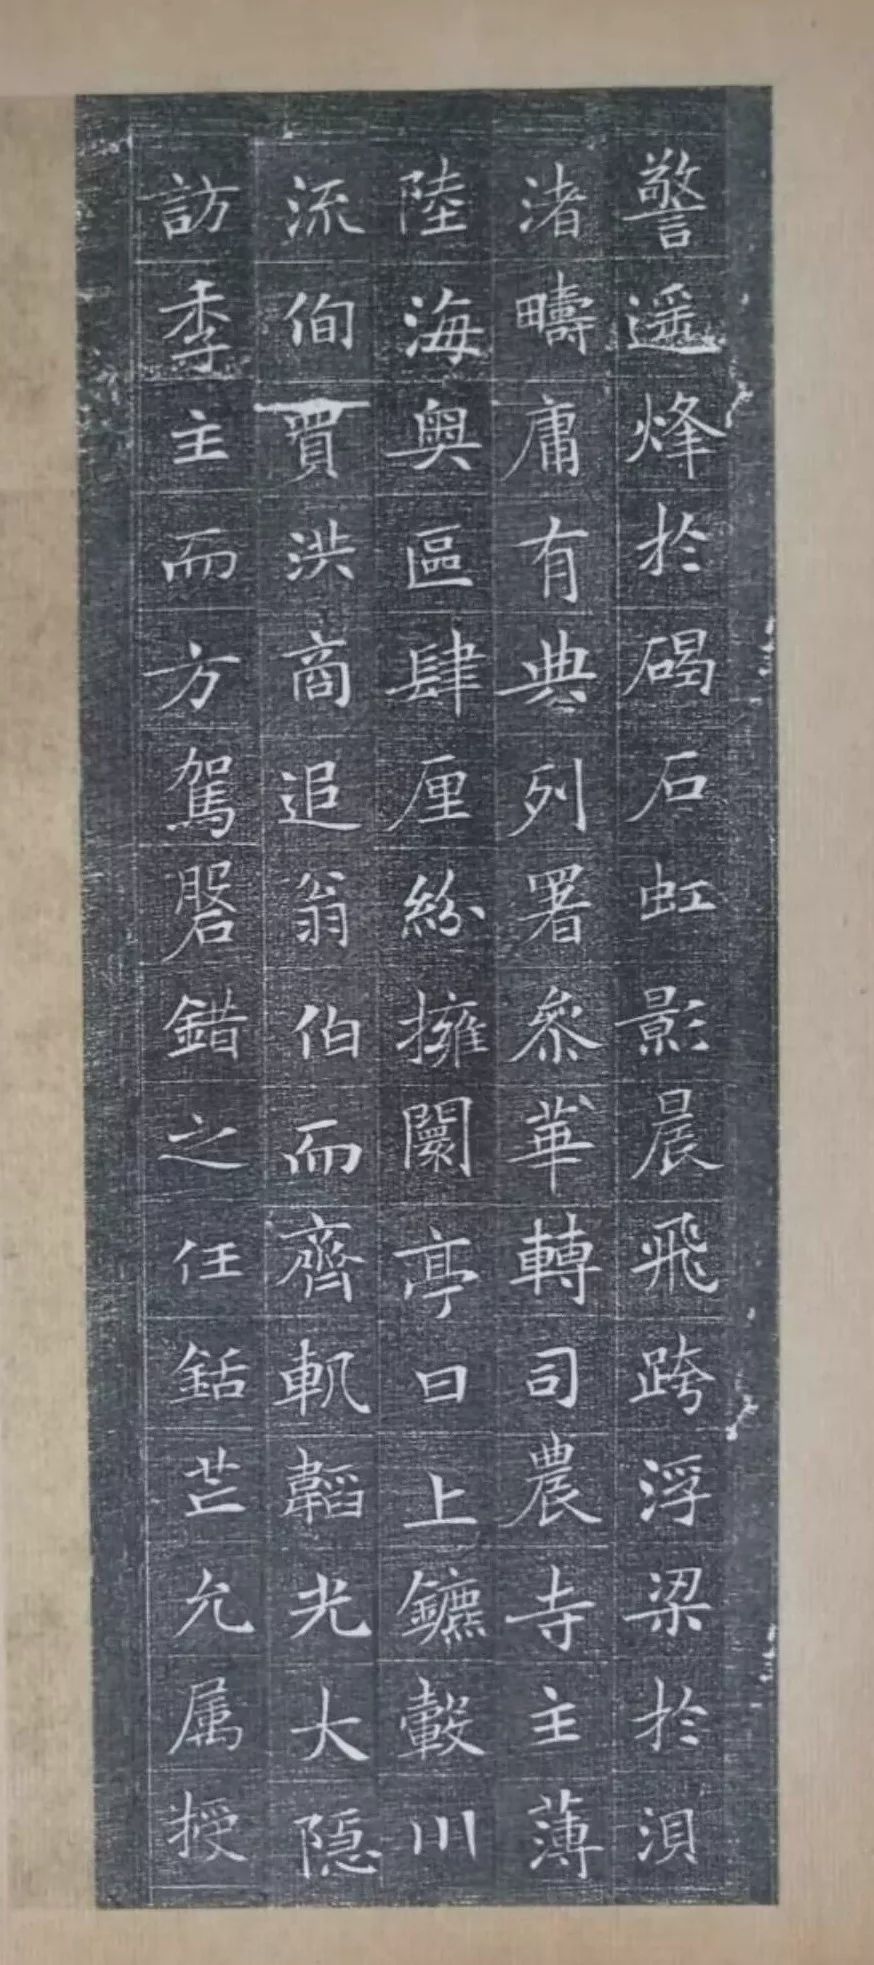 警遥烽於碣石虹影晨飛跨浮梁於浿
渚疇庸有典列署參華轉司農寺主薄
陸海奥區肆厘紛擁闤亭日上鑣轂川
流佝買洪商追翁伯而齊軌韜光大隱
訪季主而方駕磐錯之任銛芒允属授